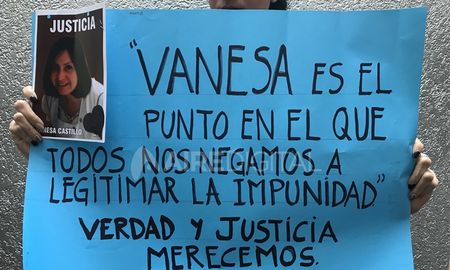 JUSTICIA
NESA CASTILLO
"VANESA ES EL
PUNTO EN EL QUE
TODOS NOS NEGAMOS A
LEGITIMAR LA IMPUNIDAD"
VERDAD Y JUSTICIA
MERECEMOS.
AIREDIGITAL